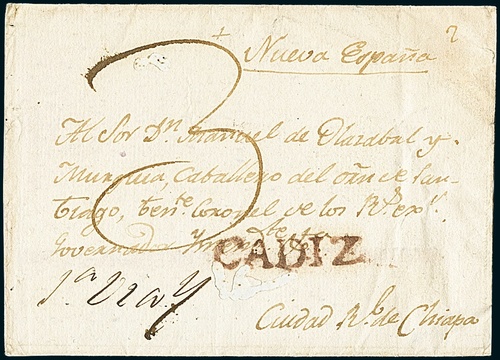 +
Nueva España
2
3
Al Sor Dn. Manuel de Olazabal y
Murguia, Caballero del orn. de San-
tiago, tente. Coronel de los Rs. exs.
Governador Yntendte.
CADIZ
1a via
Ciudad Rl. de Chiapa